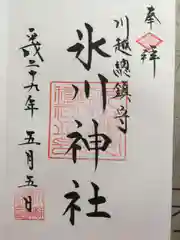 奉拝
川越總鎮守
氷川神社
平成二十九年 五月五日